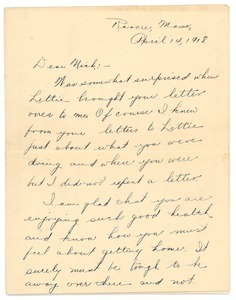 Revere, Mass,
April 14, 1918
Dear Nick:-
Was somewhat surprised when
Lettie brought your letter
over to me. Of course I knew
from your letters to Lettie
just about what you were
doing and where you were
but I did not expect a letter.
I am glad that you are
enjoying such good health
and know how you must
feel about getting home. It
surely must be tough to be
away over there and not